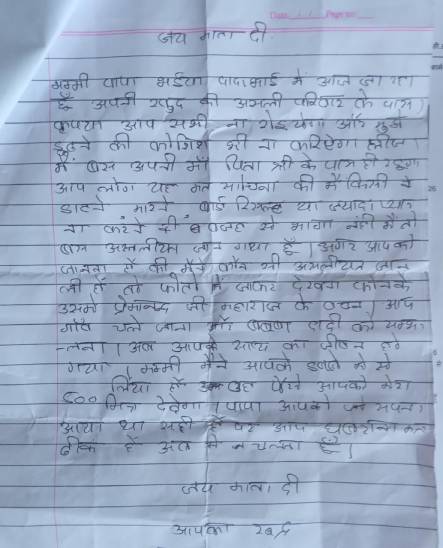 जय माता दी
मम्मी पापा भईया पापाभाई में आज जा रहा
हूँ अपनी खुद की असली परिवार के पास
कृपया आप सभी ना रोइयेगा और मुझे
ढूढने की कोशिश भी ना करिएगा प्लीज
में बस अपनी माँ पिता श्री के पास ही रहूगा
आप लोग यह मत सोचना की में किसी के
डाटने मारने बोर्ड रिजल्ट या ज्यादा प्यार
ना करने की वजह से भागा नहीं में तो
बस असलीयत जान गया हूँ अगर आपको
जानना हो की मैंने कौन सी असलीयत जान
ली है तो फोटो में जाकर देखना
उसमे प्रेमानन्द जी महाराज के वचन आप
चले जाना दादी को
अब आपके साथ का जीवन हो
गया मम्मी मैंने आपके डब्बे में से
500 लिया हूँ वह पैसे आपको मेरा
मित्र देदेगा पापा आपको जो सपना
आया था सही है पर आप घबराना मत
ठीक है अब में चलता हूँ
जय माता दी
आपका